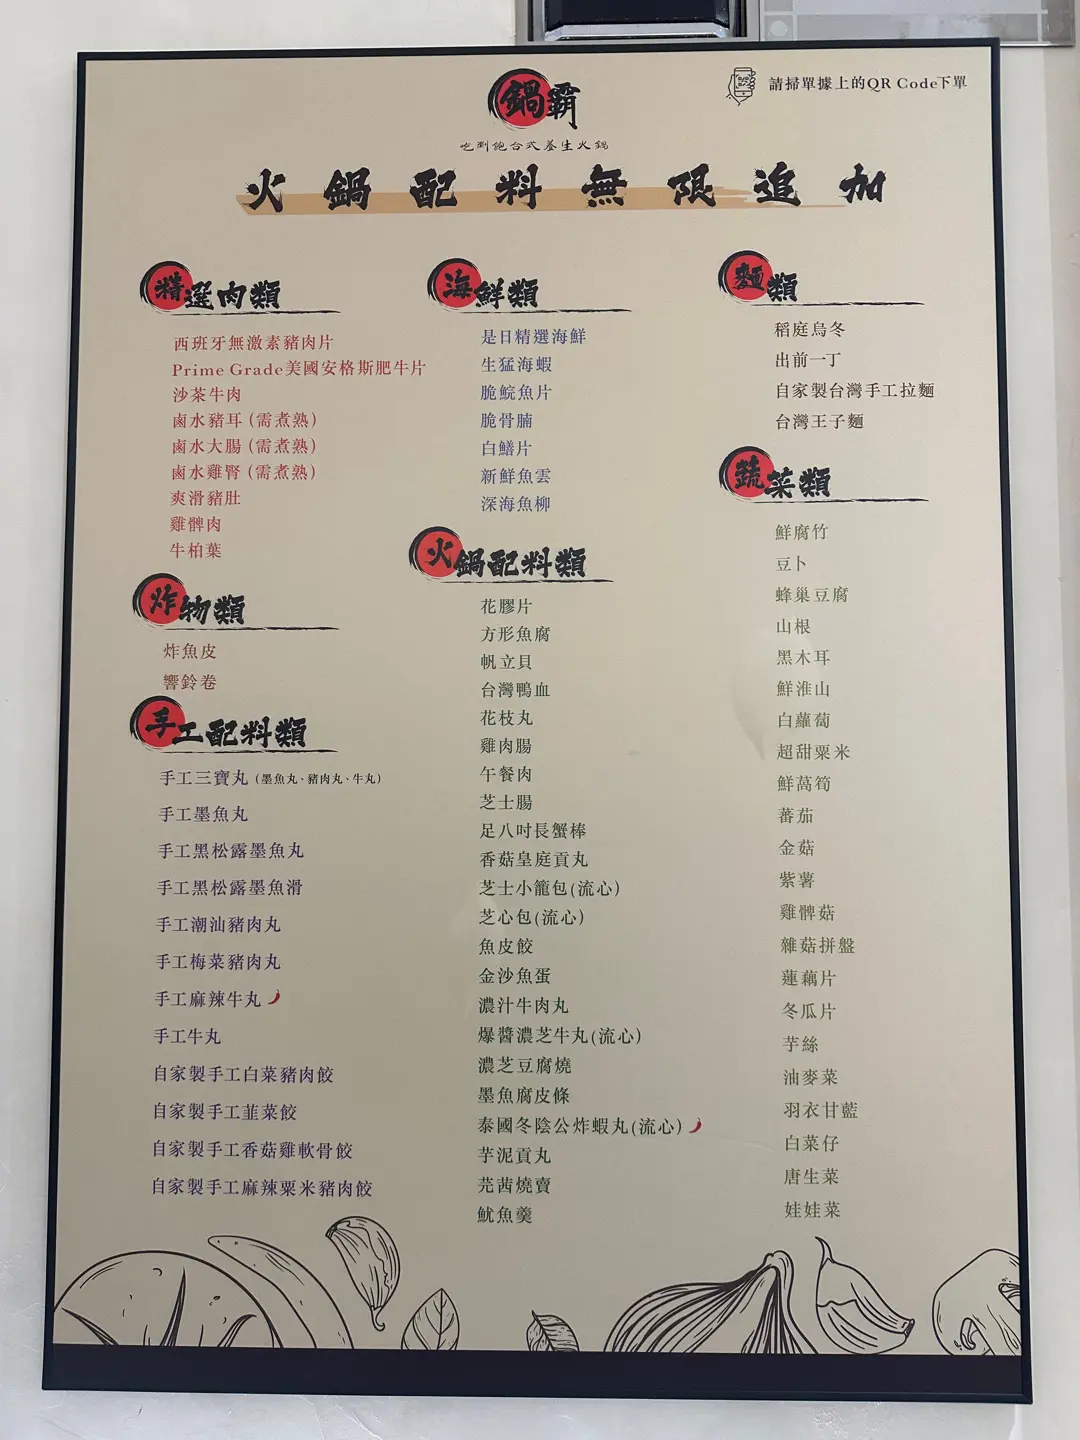 請掃單據上的QR Code下單
鍋霸
吃到飽台式養生火鍋
火鍋配料無限追加
精選肉類
西班牙無激素豬肉片
Prime Grade美國安格斯肥牛片
沙茶牛肉
鹵水豬耳 (需煮熟)
鹵水大腸 (需煮熟)
鹵水雞腎 (需煮熟)
爽滑豬肚
雞髀肉
牛柏葉
炸物類
炸魚皮
響鈴卷
手工配料類
手工三寶丸 (墨魚丸、豬肉丸、牛丸)
手工墨魚丸
手工黑松露墨魚丸
手工黑松露墨魚滑
手工潮汕豬肉丸
手工梅菜豬肉丸
手工麻辣牛丸
手工牛丸
自家製手工白菜豬肉餃
自家製手工韮菜餃
自家製手工香菇雞軟骨餃
自家製手工麻辣粟米豬肉餃
海鮮類
是日精選海鮮
生猛海蝦
脆鯇魚片
脆骨腩
白鱔片
新鮮魚雲
深海魚柳
火鍋配料類
花膠片
方形魚腐
帆立貝
台灣鴨血
花枝丸
雞肉腸
午餐肉
芝士腸
足八吋長蟹棒
香菇皇庭貢丸
芝士小籠包(流心)
芝心包(流心)
魚皮餃
金沙魚蛋
濃汁牛肉丸
爆醬濃芝牛丸(流心)
濃芝豆腐燒
墨魚腐皮條
泰國冬陰公炸蝦丸(流心)
芋泥貢丸
芫茜燒賣
魷魚羹
麵類
稻庭烏冬
出前一丁
自家製台灣手工拉麵
台灣王子麵
蔬菜類
鮮腐竹
豆卜
蜂巢豆腐
山根
黑木耳
鮮淮山
白蘿蔔
超甜粟米
鮮萵筍
蕃茄
金菇
紫薯
雞髀菇
雜菇拼盤
蓮藕片
冬瓜片
芋絲
油麥菜
羽衣甘藍
白菜仔
唐生菜
娃娃菜